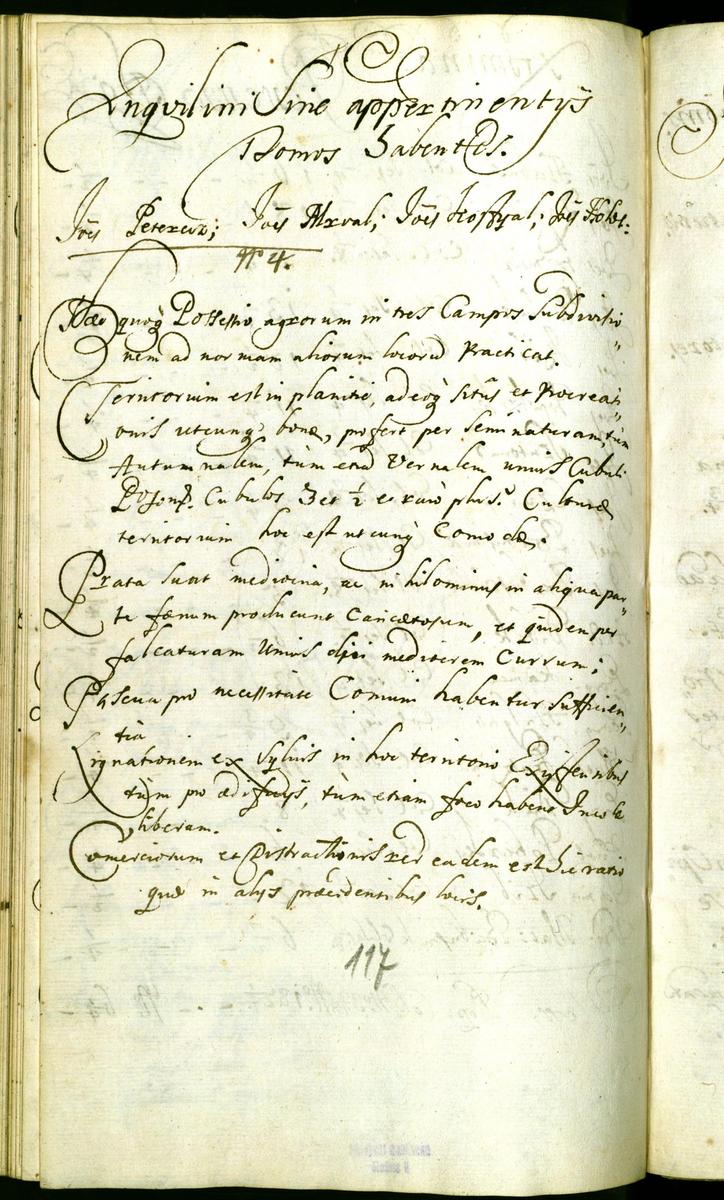 Inquilini Sine appertinentijs
Domos Habentes.
Jōēs Petrezur; Jōēs Mxval; Jōēs Hoffyal; Jōēs
No 4.
Hæc quoq Possessio agrorum in tres Campos Subdivisio
nem ad normam aliorum locorū Practicat.
Territorium est in planitie, adeoq sitūs et Procreati
onis utcunq bonæ, profert per seminaturam tùm
Autumnalem, tùm etiā Vernalem unius Cubuli
Poson. Cubulos 3 et ½ et rarò plus. Culturæ
territorium hoc est utcunq Comodæ.
Prata sunt mediocria, ac nihilominus in aliqua par
te fænum producunt Caricetosum, et quidem per
falcaturam Unius diei mediocrem Currum;
Pascua pro necessitate Comuni habentur Sufficien
tia
Lignationem ex Sylvis in hoc territorio Existentibus
tùm pro ædificijs, tùm etiam foco habent Incolæ
liberam.
Comerciorum et Distractionis red eadem est hic ratio
quæ in alijs præcedentibus locis.
117